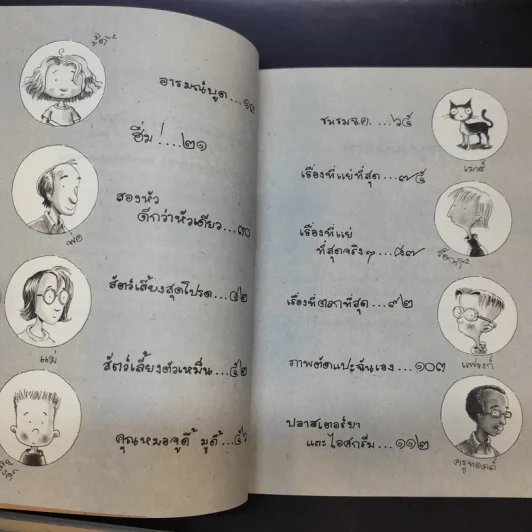 จูดี้
อารมณ์บูด...๑๓
ฮึ่ม!....๒๑
สองหัว
ดีกว่าหัวเดียว...๓๐
พ่อ
สัตว์เลี้ยงสุดโปรด...๔๒
แม่
สัตว์เลี้ยงตัวเหม็น...๕๒
คุณหมอจูดี้ มูดี้...๕๖
ชมรมฉค...๖๕
เมาส์
เรื่องที่แย่ที่สุด...๗๕
เรื่องที่แย่
ที่สุดจริงๆ...๘๗
ร็อกกี้
เรื่องที่ตลกที่สุด...๙๒
แฟรงก์
ภาพตัดแปะฉันเอง...๑๐๓
ปลาสเตอร์ยา
และไอศกรีม...๑๑๒
ครูทอดด์